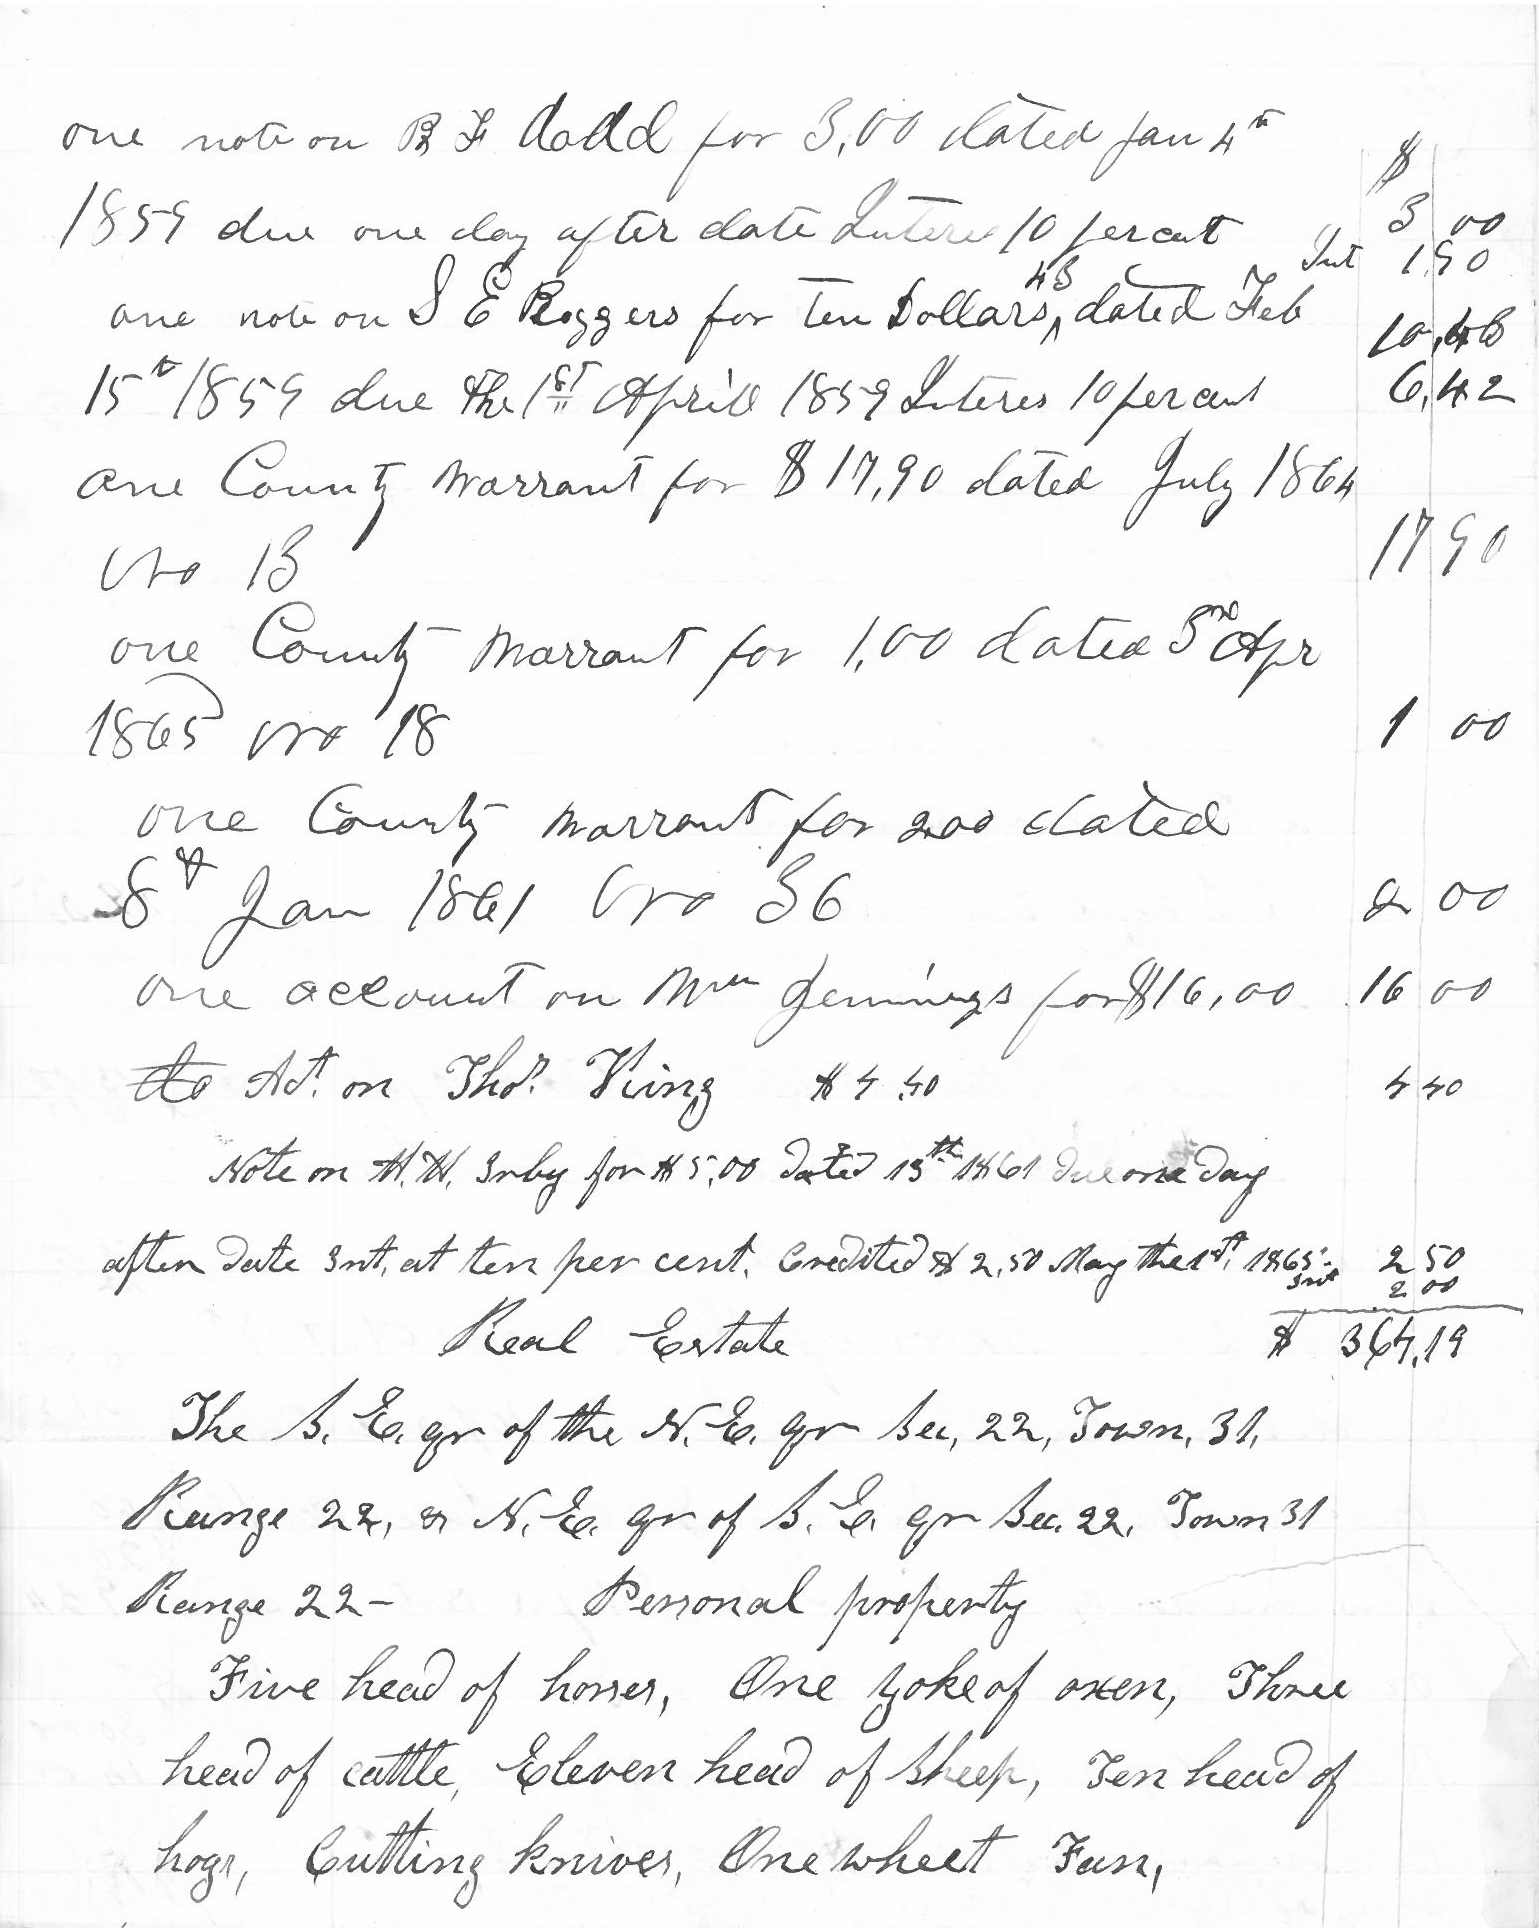 one note on B F Dodd for 3,00 dated Jan 4th
$
1859 due one day after date Interes 10 per cent 3 00
Int 1,90
one note on S E Boggers for ten Dollars 43 dated Feb 10,43
15th 1859 due the 1st Aprill 1859 Interes 10 per cent 6,42
one County Warrant for $17,90 dated July 1864
No 13 17 90
one County Warrant for 1,00 dated 3rd Apr
1865 No 18 1 00
one County Warrant for 2.00 dated
8th Jan 1861 No 36 2 00
one account on Wm Jennings for $16,00 16 00
do Act. on Thos. King $4.40 4 40
Note on H. H. Irby for $5,00 dated 13th 1861 due one day
after date Int, at ten per cent. Credited $2,50 May the 1st, 1865- 2 50
Int 2.00
Real Estate $ 364,19
The S. E. qr of the N. E. qr Sec, 22, Town, 31,
Range 22, & N. E. qr of S. E. qr Sec. 22, Town 31
Range 22- Personal property
Five head of horses, One yoke of oxen, Three
head of cattle, Eleven head of sheep, Ten head of
hogs, Cutting knives, One wheet Fan,